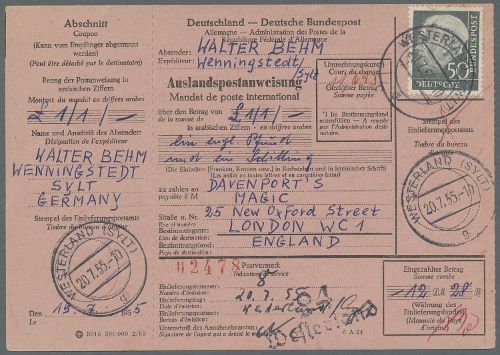 Abschnitt
Coupon
(Kann vom Empfänger abgetrennt werden)
(Peut être détaché par le destinataire)
Betrag der Postanweisung in arabischen Ziffern
Montant du mandat en chiffres arabes
£ 1/1/-
Name und Anschrift des Absenders
Désignation de l'expéditeur
WALTER BEHM
WENNINGSTEDT
SYLT
GERMANY
Stempel des Einlieferungspostamts
Timbre du bureau d'origine
WESTERLAND (SYLT)
20.7.55-10
g
Den 19. 7. 1955
Le
Deutschland – Deutsche Bundespost
Allemagne – Administration des Postes de la République Fédérale d'Allemagne
Absender: WALTER BEHM
Expéditeur: Wenningstedt/Sylt
Auslandspostanweisung
Mandat de poste international
Umrechnungskurs
Cours du change
Gezahlter Betrag
Somme payée
über den Betrag von
de la somme de
£1/1/-
in arabischen Ziffern – en chiffres arabes
ein engl. Pfund
und ein Schilling
(Die Einheiten [Kronen usw.] in Buchstaben und in lateinischer Schrift)
(Les unités en toutes lettres et en caractères latins)
[*) Im Bestimmungsland auszufüllen – A remplir par l'Administration destinataire.
zu zahlen an
payable à M.
DAVENPORT'S
MAGIC
Straße u. Nr.
Rue et no
25 New Oxford Street
Bestimmungsort:
Lieu de destination:
LONDON WC 1
Bestimmungsland:
Pays de destination:
ENGLAND
WESTERLAND
(SYLT)
DEUTSCHE BUNDESPOST
50
Stempel des Einlieferungspostamts
Timbre du bureau d'origine
WESTERLAND (SYLT)
20.7.55-10
g
02478
Postvermerk
Indications de service
Einlieferungsnummer
8
20.7.55
Westerland
Unterschrift des Annahmebeamten:
Signature de l'agent
Eingezahlter Betrag
Somme versée
12 DM 28
(Währung des Einlieferungslandes)
(Monnaie du Pays d'origine)